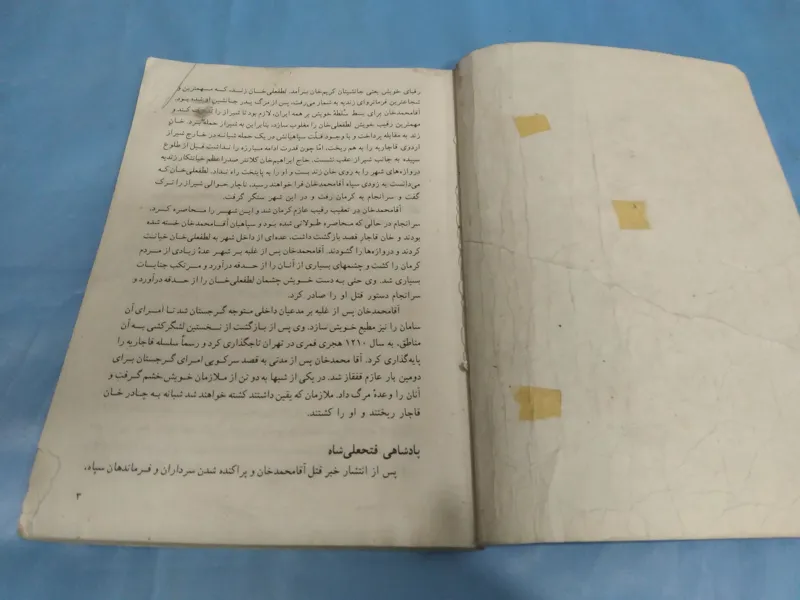 رقبای خویش یعنی جانشینان کریم‌خان برآمد. لطفعلی‌خان زند، که مهمترین و
شجاعترین فرمانروای زندیه به شمار می‌رفت، پس از مرگ پدر جانشین او شده بود.
آقامحمدخان برای بسط سُلطهٔ خویش بر همه ایران، لازم بود تا شیراز را تصرف کند و
مهمترین رقیب خویش لطفعلی‌خان را مغلوب سازد. بنابراین به شیراز حمله برد. خان
زند به مقابله پرداخت و با وجود قلّت سپاهیانش در یک حمله شبانه در خارج شیراز
اردوی قاجاریه را به هم ریخت، امّا چون قدرت ادامه مبارزه را نداشت قبل از طلوع
سپیده به جانب شیراز عقب نشست. حاج ابراهیم‌خان کلانتر صدراعظم خیانتکار زندیه
دروازه‌های شهر را به روی خان زند بست و او را به پایتخت راه نداد. لطفعلی‌خان که
می‌دانست به زودی سپاه آقامحمدخان فرا خواهند رسید، ناچار حوالی شیراز را ترک
گفت و سرانجام به کرمان رفت و در این شهر سنگر گرفت.
آقامحمدخان در تعقیب رقیب عازم کرمان شد و این شهر را محاصره کرد.
سرانجام در حالی که محاصره طولانی شده بود و سپاهیان آقامحمدخان خسته شده
بودند و خان قاجار قصد بازگشت داشت، عده‌ای از داخل شهر به لطفعلی‌خان خیانت
کردند و دروازه‌ها را گشودند. آقامحمدخان پس از غلبه بر شهر عدهٔ زیادی از مردم
کرمان را کشت و چشمهای بسیاری از آنان را از حدقه درآورد و مرتکب جنایات
بسیاری شد. وی حتی به دست خویش چشمان لطفعلی‌خان را از حدقه درآورد و
سرانجام دستور قتل او را صادر کرد.
آقامحمدخان پس از غلبه بر مدعیان داخلی متوجه گرجستان شد تا امرای آن
سامان را نیز مطیع خویش سازد. وی پس از بازگشت از نخستین لشگرکشی به آن
مناطق، به سال ۱۲۱۰ هجری قمری در تهران تاجگذاری کرد و رسماً سلسله قاجاریه را
پایه‌گذاری کرد. آقا محمدخان پس از مدتی به قصد سرکوبی امرای گرجستان برای
دومین بار عازم قفقاز شد. در یکی از شبها به دو تن از ملازمان خویش خشم گرفت و
آنان را وعدهٔ مرگ داد. ملازمان که یقین داشتند کشته خواهند شد شبانه به چادر خان
قاجار ریختند و او را کشتند.
پادشاهی فتحعلی‌شاه
پس از انتشار خبر قتل آقامحمدخان و پراکنده شدن سرداران و فرماندهان سپاه،
۳